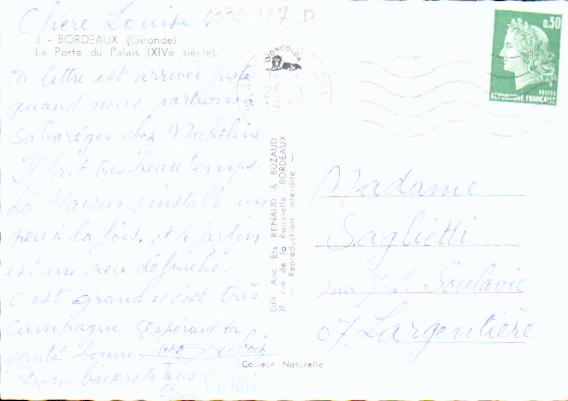 Chère Louise
03301127 D
3 - BORDEAUX (Gironde)
La Porte du Palais (XIVe siècle).
ta lettre est arrivée juste
quand nous partions à
Sabarèges chez Micheline
Il fait très beau temps.
La Maison s'installe un
peu à la fois, et le jardin
est un peu défriché.
C'est grand et c'est très
campagne. J'espérant ta
santé bonne
Bons baisers de tous
Edit. Anc. Ets RENAUD & BUZAUD
19, rue de la Rousselle - BORDEAUX
— Reproduction interdite —
Couleur Naturelle
0,30
POSTES
RÉPUBLIQUE FRANÇAISE
Madame
Saglietti
rue J.L. Soulavie
07. Largentière